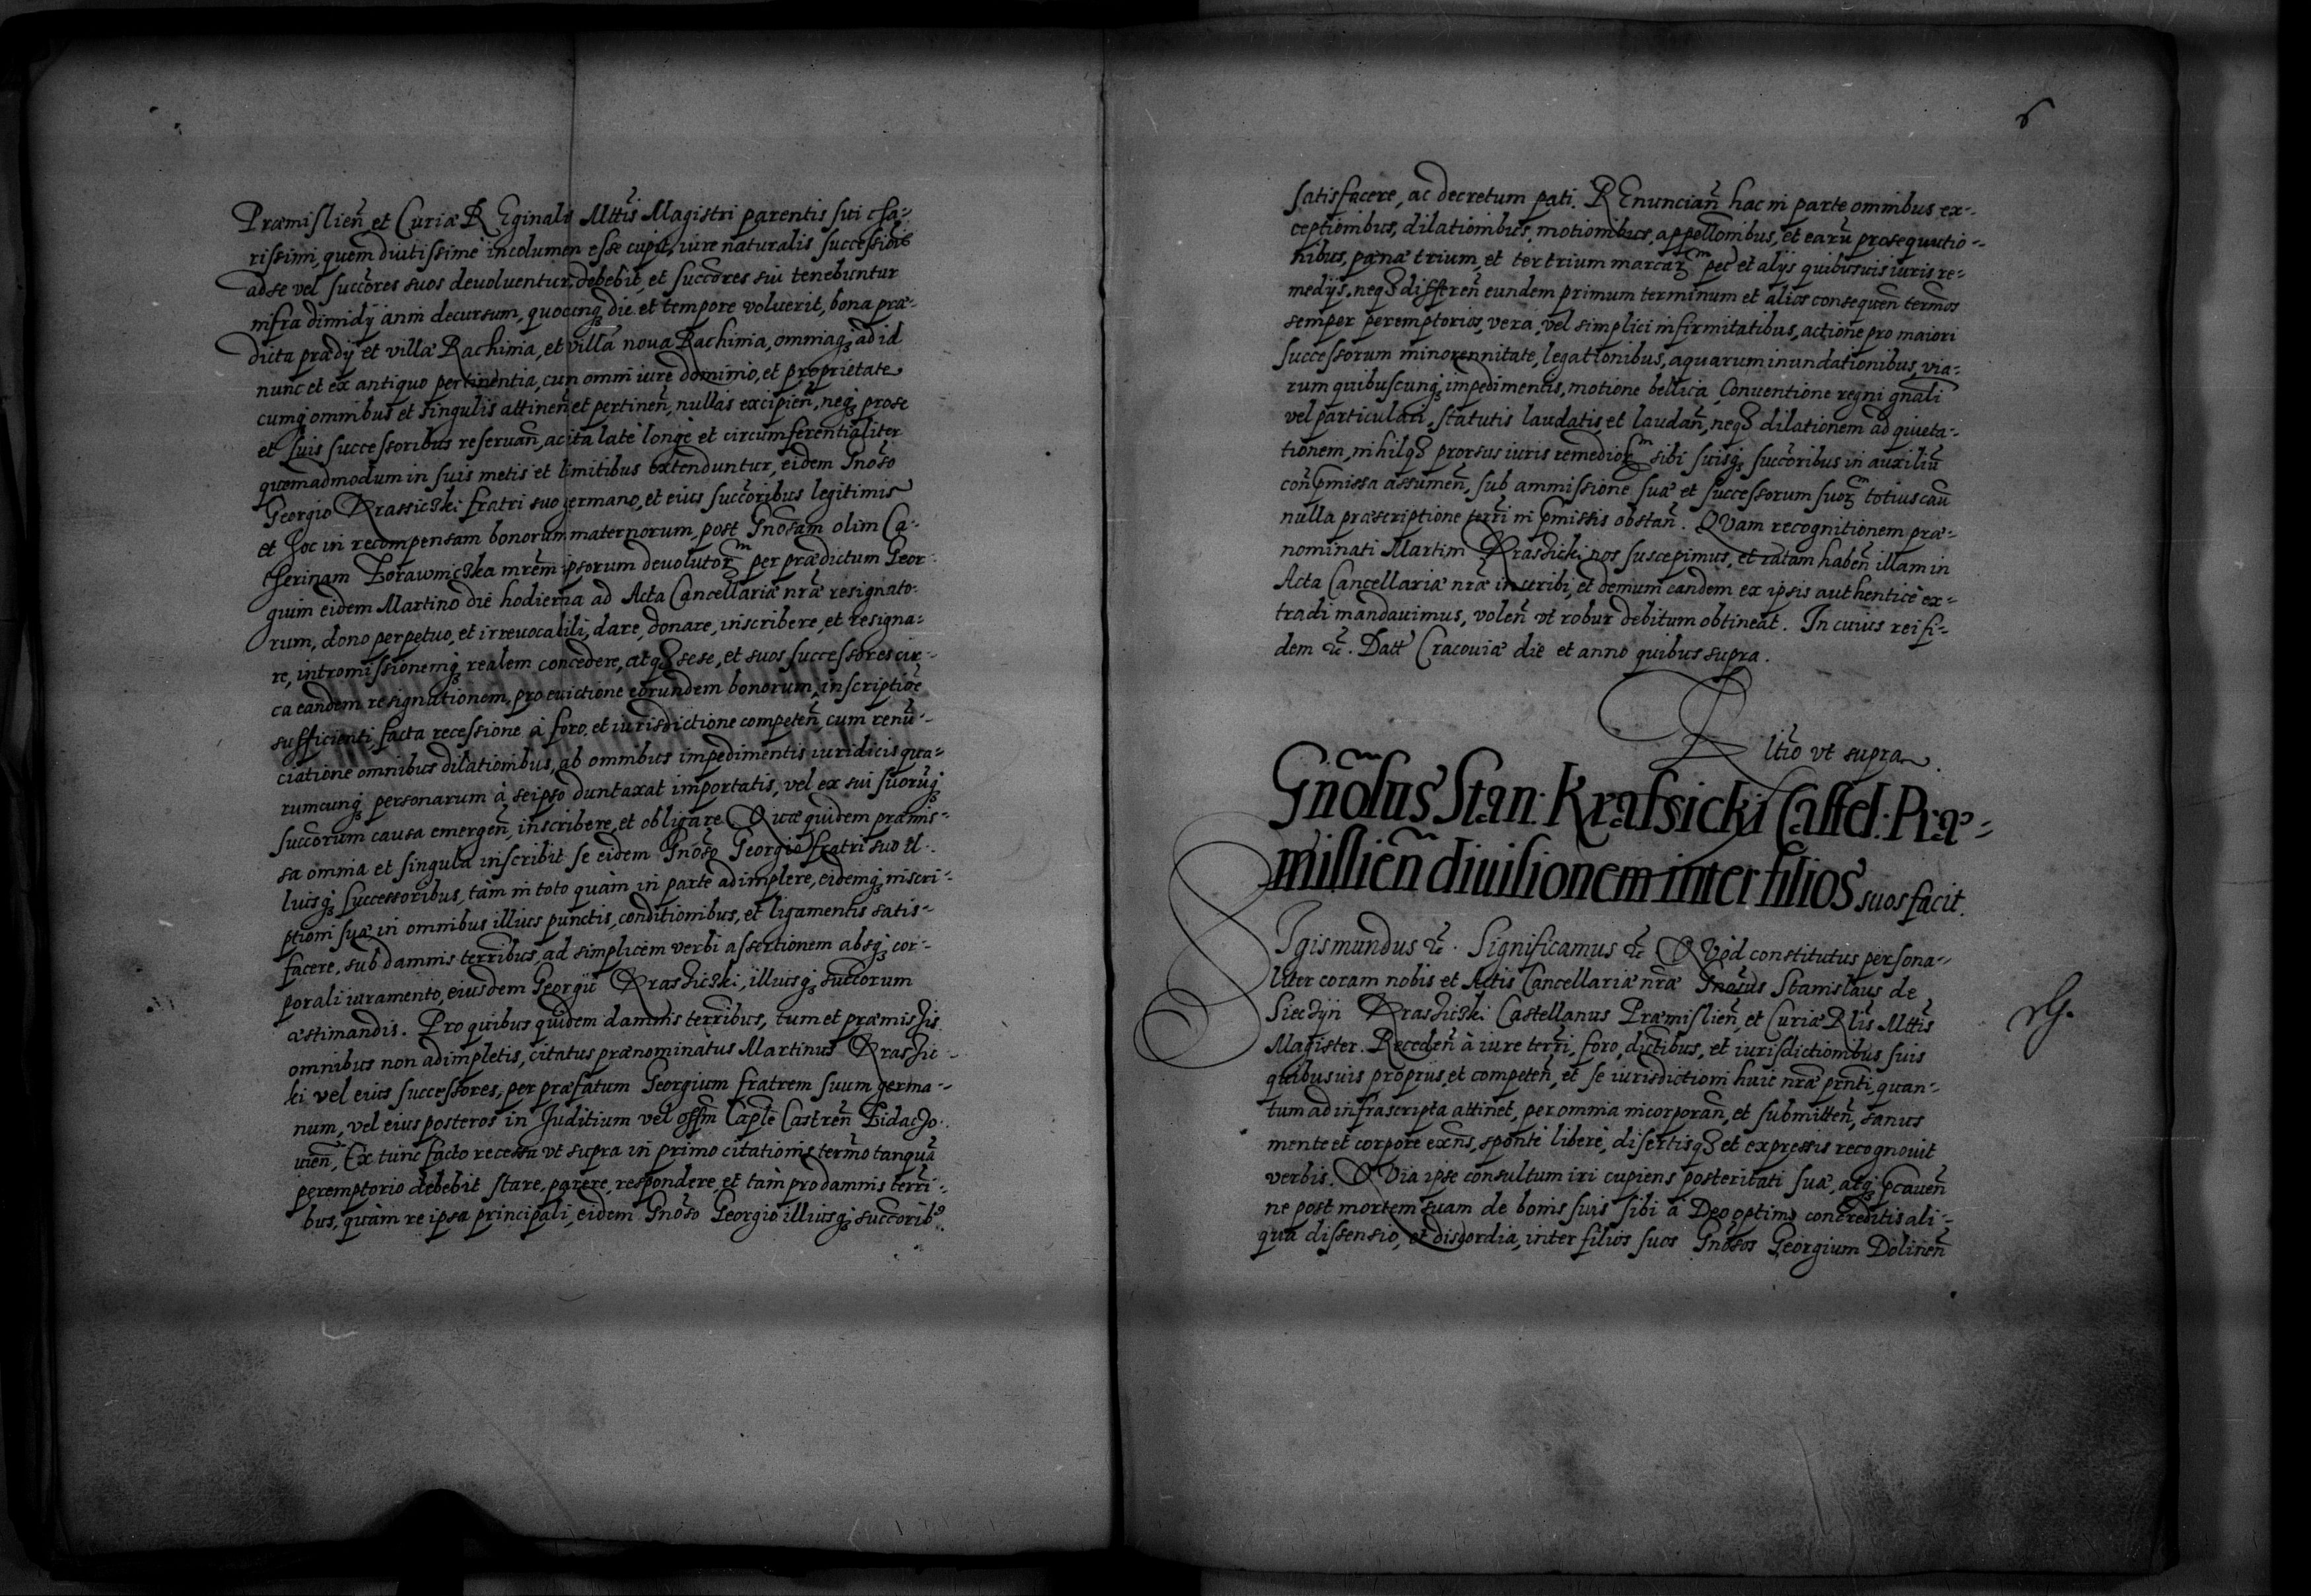 Præmislien̄ et Curiæ REginalis Mttis Magistri parentis sui cha-
rissimi, quem diutissimè incolumem esse cupit, iure naturalis successionis
ad se vel succōres suos deuoluentur, debebit, et succōres sui tenebuntur
infra dimidÿ anni decursum, quocunq₃ die et tempore voluerit, bona præ-
dicta prædÿ et villæ Rachinia, et villa noua Rachinia, omniaq₃ ad id
nunc et ex antiquo pertinentia, cum omni iure dominio, et proprietate
cumq₃ omnibus et singulis attinen̄ et pertinen̄, nullas excipien̄, neq₃ pro se
et suis successoribus reseruan̄, ac ita latè longè et circumferentialiter
quemadmodum in suis metis et limitibus extenduntur, eidem Gnōso
Georgio Krassicżki fratri suo germano, et eius succōribus legitimis
et hoc in recompensam bonorum maternorum, post Gnōsam olim Ca-
therinam Borawnicżka mrēm ipsorum deuolutorᷓ per prædictum Geor-
gium eidem Martino die hodierna ad Acta Cancellariæ nrǣ resignato-
rum, dono perpetuo, et irreuocabili, dare, donare, inscribere, et resigna-
re, intromissionemq₃ realem concedere, atq₃ sese, et suos successores cir-
ca eandem resignationem, pro euictione eorundem bonorum, inscriptiōe
sufficienti, facta recessione à foro, et iurisdictione competen̄, cum renū-
ciatione omnibus dilationibus, ab omnibus impedimentis iuridicis qua-
rumcunq₃ personarum à seipso duntaxat importatis, vel ex sui suorūq₃
succōrum causa emergen̄, inscribere, et obligare. Quæ quidem præmis-
sa omnia et singula inscribit se eidem Gnōso Georgio fratri suo il-
liusq₃ successoribus, tàm in toto quàm in parte adimplere, eidemq₃ inscri-
ptioni suæ in omnibus illius punctis, conditionibus, et ligamentis satis-
facere, sub damnis terrībus, ad simplicem verbi assertionem absq₃ cor-
porali iuramento, eiusdem Georgii Krassicżki, illiusq₃ succōrum
æstimandis. Pro quibus quidem damnis terrībus, tum et præmissis
omnibus non adimpletis, citatus prænominatus Martinus Krassic-
ki vel eius successores, per præfatum Georgium fratrem suum germa-
num, vel eius posteros in Juditium vel offm̄ Caplē Castren̄ Zidacho-
uien̄, Ex tunc facto recessu vt supra in primo citationis termō tanquā
peremptorio debebit stare, parere, respondere, et tàm pro damnis terrī-
bus, quàm re ipsa principali, eidem Gnōso Georgio illiusq₃ succōribꝰ
satisfacere, ac decretum pati. REnuncian̄ hac in parte omnibus ex-
ceptionibus, dilationibus, motionibus, appellōnibus, et earū prosequutio-
nibus, pœnæ trium, et ter trium marcarᷓ pec̄ et alÿs quibusuis iuris re-
medÿs, neq₃ differen̄ eundem primum terminum et alios consequen̄ termōs
semper peremptorios, vera, vel simplici infirmitatibus, actione pro maiori
successorum minorennitate, legationibus, aquarum inundationibus, via-
rum quibuscunq₃ impedimentis, motione bellica Conuentione regni gnāli
vel particulari, statutis laudatis, et laudan̄, neq₃ dilationem ad quieta-
tionem, nihilq₃ prorsus iuris remediorᷓ sibi suisq₃ succōribus in auxiliū
con̄ p̄missa assumen̄, sub ammissione suæ et successorum suorᷓ totius cau̅
nulla præscriptione terrī in p̄missis obstan̄. QVam recognitionem præ-
nominati Martini Krassicki nos suscepimus, et ratam haben̄ illam in
Acta Cancellariæ nrǣ inscribi, et demum eandem ex ipsis authenticè ex-
tradi mandauimus, volen̄ vt robur debitum obtineat. In cuius rei fi-
dem &c̄. Datt Cracouiæ die et anno quibus supra.
Rltio vt supra.
Gnōsus Stan: Krassicki Castel: Præ-
mislien̄ diuisionem inter filios suos facit.
SIgismundus &c̄. Significamus &c̄ QVòd constitutus persona-
liter coram nobis et Actis Cancellariæ nrǣ Gnōsus Stanislaus de
Siecżÿn Krassicżki Castellanus Præmislien̄, et Curiæ Rlis Mttis
Magister. Receden̄ à iure terrī, foro, dictibus, et iurisdictionibus suis
quibusuis proprÿs, et competen̄, et se iurisdictioni huic nrǣ prn̄ti, quan-
tum ad infrascripta attinet, per omnia incorporan̄, et submitten̄, sanus
mente et corpore exn̄s, sponte liberè, disertisq₃ et expressis recognouit
verbis. QVia ipse consultum iri cupiens posteritati suæ, atq₃ p̄cauen̄
ne post mortem suam de bonis suis sibi à Deo optimo concreditis ali-
qua dissensio, et discordia, inter filios suos Gnōsos Georgium Dolinen̄